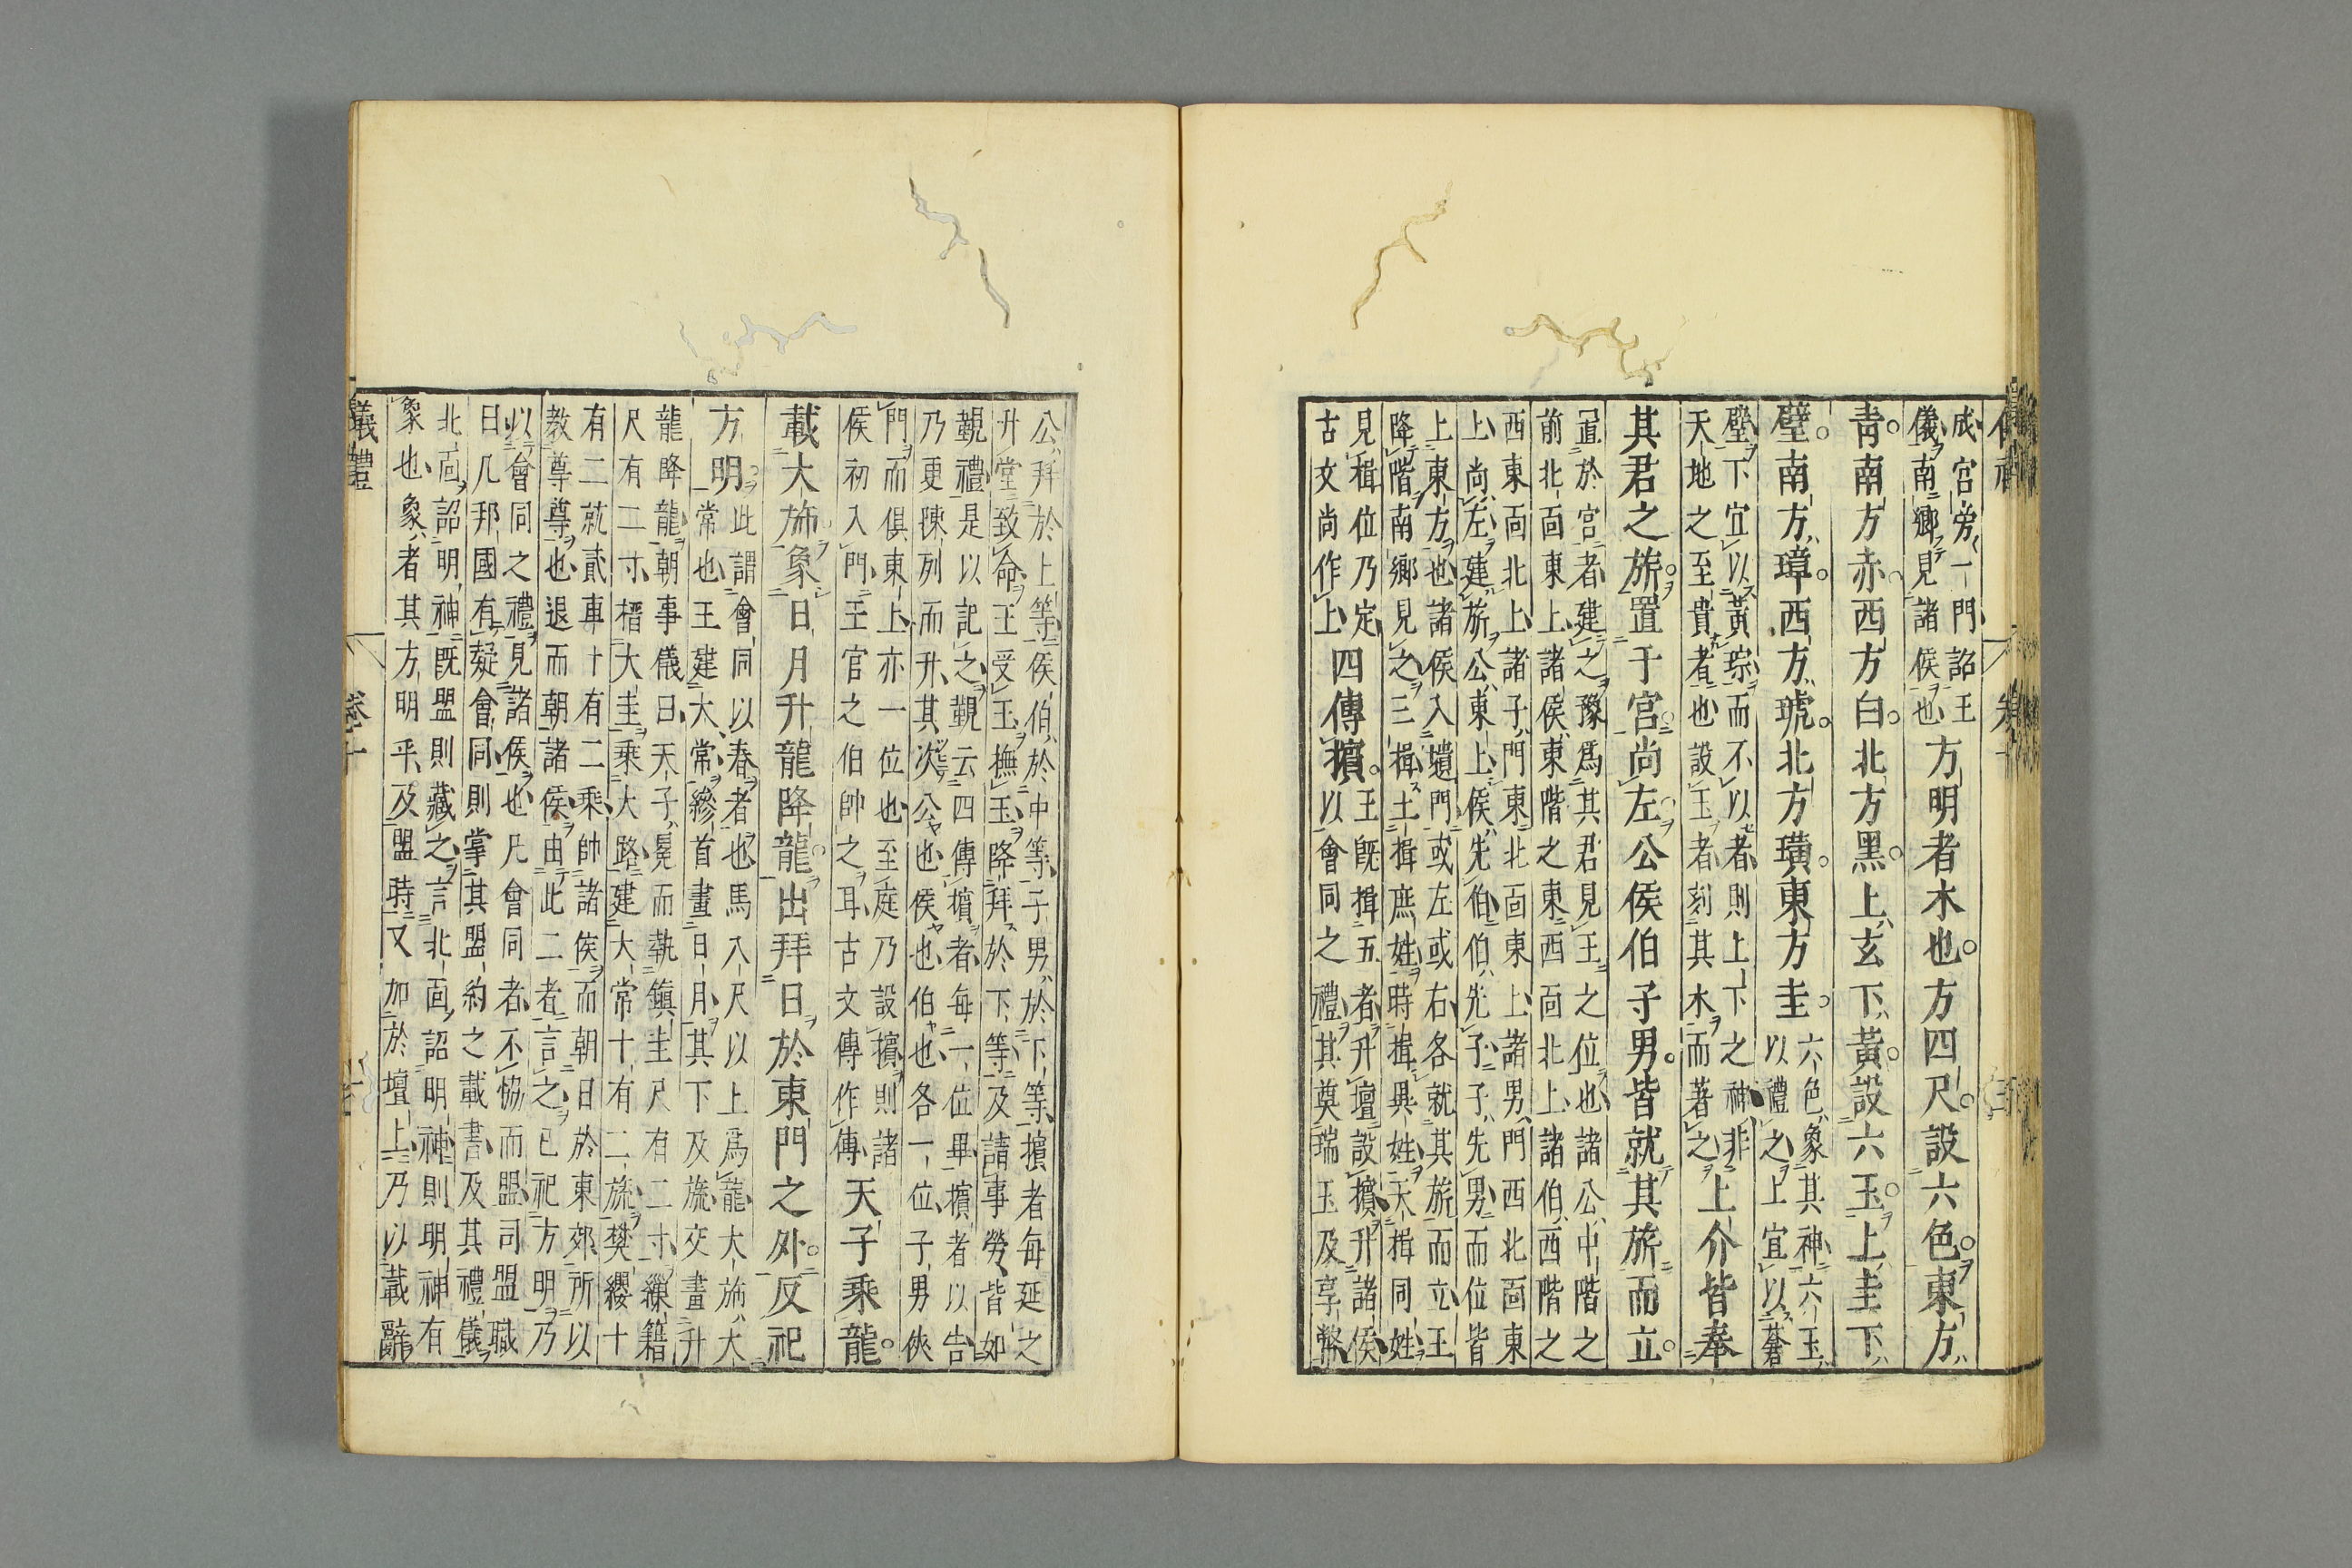 成宮旁一門詔王儀南鄉見諸侯也方明者木也方四尺設六色東方
青南方赤西方白北方黑上玄下黃設六玉上圭下
璧南方璋西方琥北方璜東方圭六色象其神六玉以禮之上宜以蒼
璧下宜以黃琮而不以者則上下之神非天地之至貴者也設玉者刻其木而著之上介皆奉
其君之旂置于宮尚左公侯伯子男皆就其旂而立
置於宮者建之豫爲其君見王之位也諸公中階之
前北面東上諸侯東階之東西面北上諸伯西階之
西東面北上諸子門東北面東上諸男門西北面東
上尚左建旂公東上侯先伯伯先子子先男而位皆
上東方也諸侯入壝門或左或右各就其旂而立王
降階南鄉見之三揖土揖庶姓時揖異姓天揖同姓
見揖位乃定古文尚作上四傳擯王既揖五者升壇設擯升諸侯以會同之禮其奠瑞玉及享幣
公拜於上等侯伯於中等子男於下等擯者每延之
升堂致命王受玉撫玉降拜於下等及請事勞皆如
覲禮是以記之覲云四傳擯者每一位畢擯者以告
乃更陳列而升其次公也侯也伯也各一位子男俠
門而俱東上亦一位也至庭乃設擯則諸侯初入門王官之伯帥之耳古文傳作傳天子乘龍
載大旆象日月升龍降龍出拜日於東門之外反祀
方明此謂會同以春者也馬八尺以上爲龍大旆大常也王建大常縿首畫日月其下及旒交畫升
龍降龍朝事儀曰天子冕而執鎮圭尺有二寸繅籍
尺有二寸搢大圭乘大路建大常十有二旒樊纓十
有二就貳車十有二乘帥諸侯而朝日於東郊所以
教尊尊也退而朝諸侯由此二者言之已祀方明乃
以會同之禮見諸侯也凡會同者不協而盟司盟職
曰凡邦國有疑會同則掌其盟約之載書及其禮儀
北面詔明神既盟則藏之言北面詔明神則明神有
象也象者其方明乎及盟時又加於壇上乃以載辭
儀禮 卷十